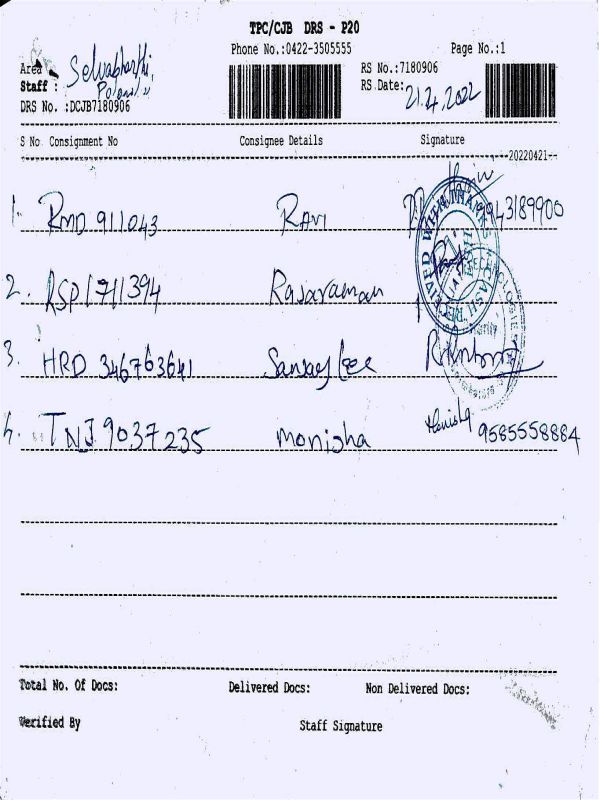 TPC/CJB DRS - P20
Phone No.:0422-3505555 Page No.:1
Area
Staff : Selvabharthi
DRS No. :DCJB7180906
RS No.:7180906
RS Date: 21.4.2022
S No Consignment No Consignee Details Signature
20220421
1. RMD 911043 RAVI 9943189900
2. RSP1711394 Rajaraman
3. HRD 346763641 Sanjay Lee
4. TNJ 9037235 monisha 9585558884
RECEIVED WITH THANKS
Total No. Of Docs: Delivered Docs: Non Delivered Docs:
Verified By Staff Signature